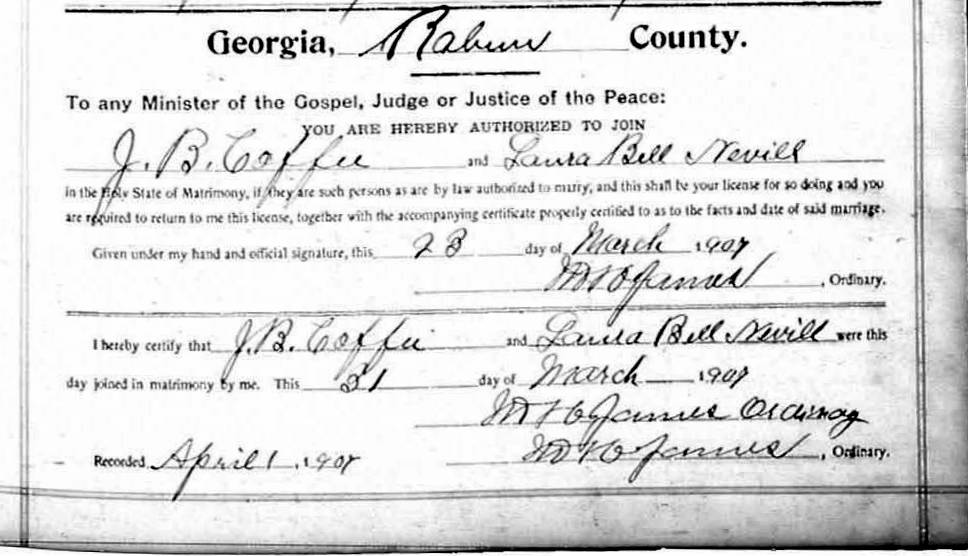 Georgia, Rabun County.
To any Minister of the Gospel, Judge or Justice of the Peace:
YOU ARE HEREBY AUTHORIZED TO JOIN
J. B. Coffee and Laura Bell Nevill
in the Holy State of Matrimony, if they are such persons as are by law authorized to marry, and this shall be your license for so doing and you
are required to return to me this license, together with the accompanying certificate properly certified to as to the facts and date of said marriage.
Given under my hand and official signature, this 23 day of March 1907
James, Ordinary.
I hereby certify that J. B. Coffee and Laura Bell Nevill were this
day joined in matrimony by me. This 31 day of March 1907
James Ordinary
Recorded April 1, 1907 James, Ordinary.